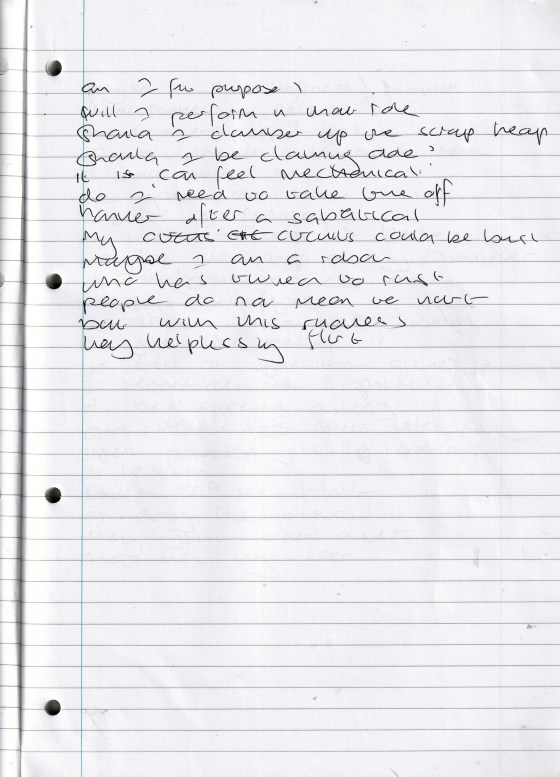 am I for purpose?
will I perform in that role
should I clamber up the scrap heap
should I be claiming
it is can feel mechanical
do I need to take time off
after a sabatical
My circuits could be
maybe I am a robot
who has turned to rust
people do not mean to hurt
but with this
they helplessly flirt